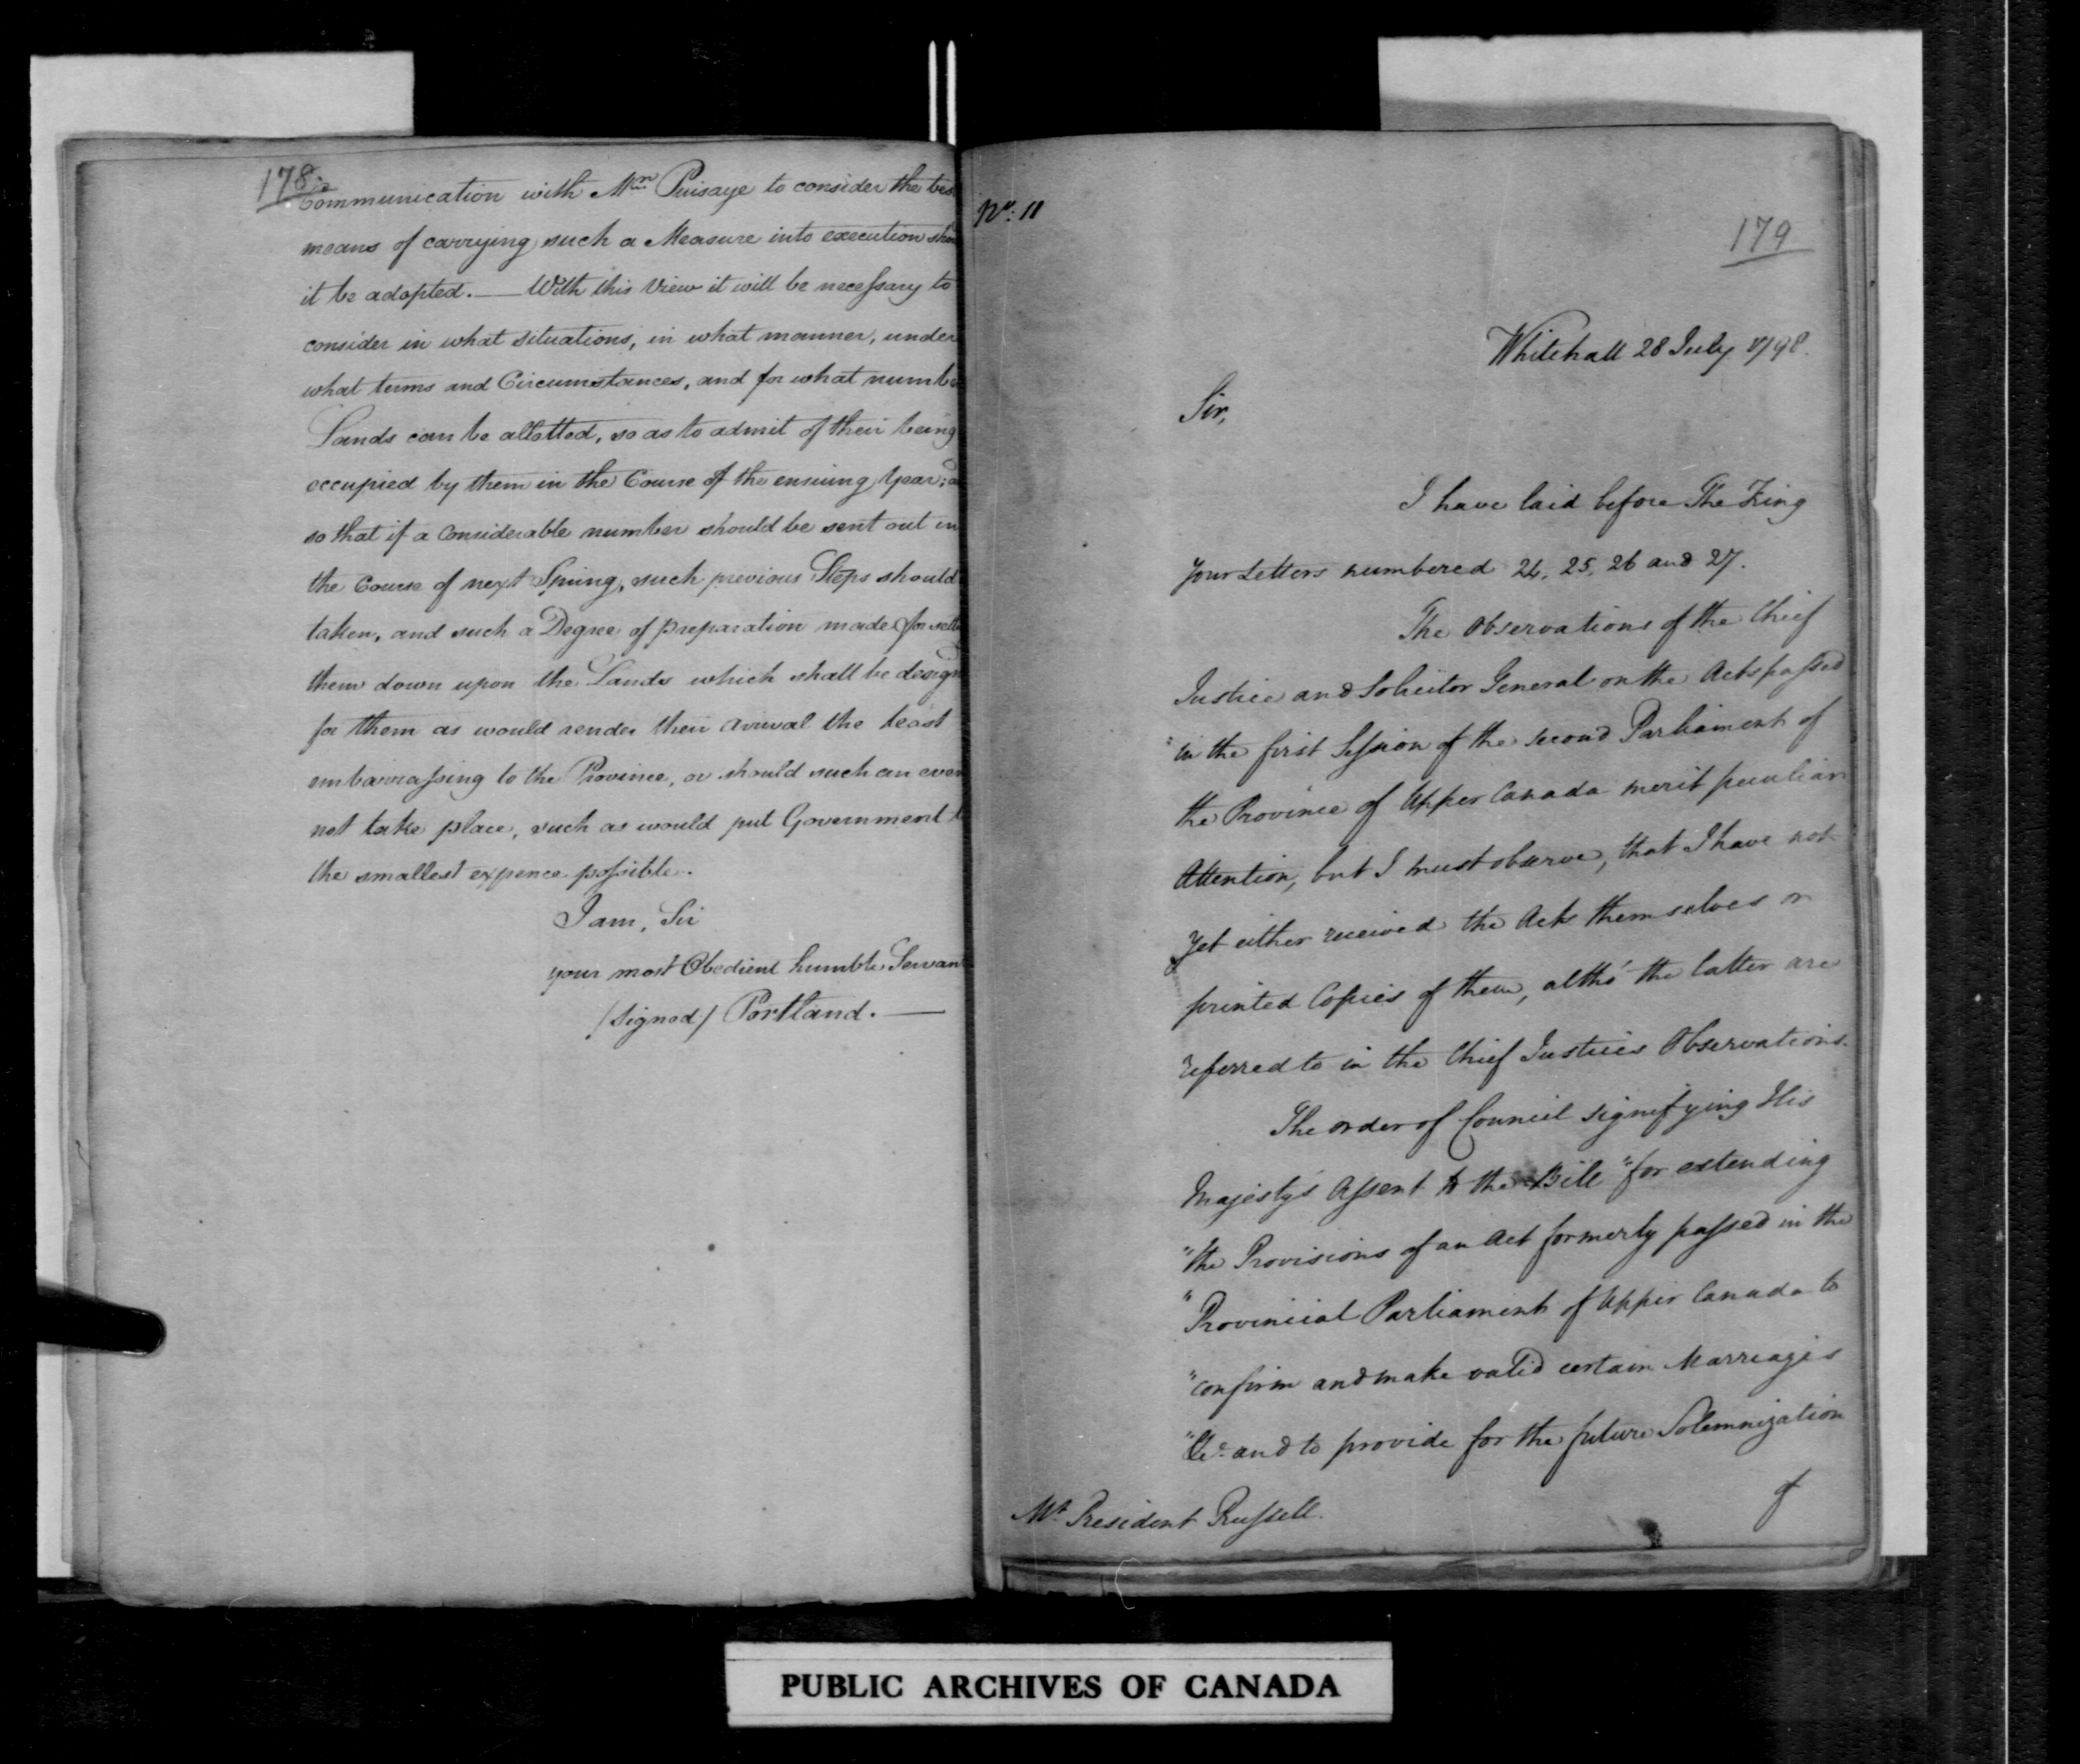 178
Communication with Mr. Puisaye to consider the bes
means of carrying such a Measure into execution sho
it be adopted. — With this View it will be necessary to
consider in what situations, in what manner, under
what terms and Circumstances, and for what numbe
Lands can be allotted, so as to admit of their being
occupied by them in the Course of the ensuing Year;
so that if a Considerable number should be sent out in
the Course of next Spring, such previous Steps should
taken, and such a Degree of preparation made for settl
them down upon the Lands which shall be design
for them as would render their arrival the least
embarrassing to the Province, or should such an even
not take place, such as would put Government
the smallest expence possible.
I am, Sir
your most Obedient humble Servan
/Signed/ Portland. —
No: 11
179
Whitehall 28 July 1798.
Sir,
I have laid before The King
your Letters numbered 24, 25, 26 and 27.
The Observations of the Chief
Justice and Solicitor General on the Acts passed
in the first Session of the second Parliament of
the Province of Upper Canada merit peculiar
Attention, but I must observe, that I have not
yet either received the Acts themselves or
printed Copies of them, altho' the latter are
referred to in the Chief Justices Observations.
The order of Council signifying His
Majesty's Assent to the Bill "for extending
"the Provisions of an Act formerly passed in the
"Provincial Parliament of Upper Canada to
"confirm and make valid certain Marriages
"&c. and to provide for the future Solemnization
of
Mr. President Russell.
PUBLIC ARCHIVES OF CANADA